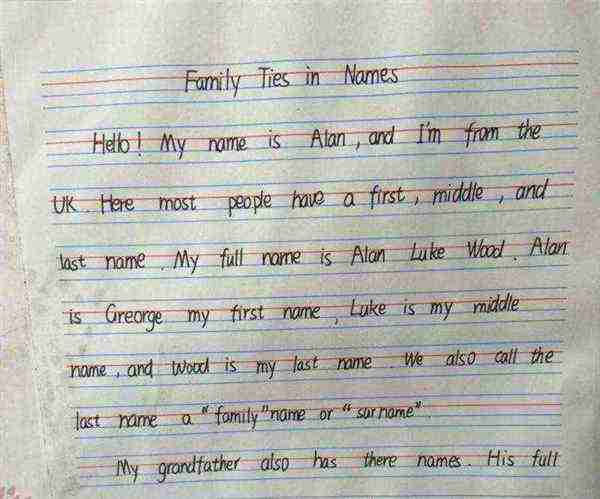 Family Ties in Names
Hello! My name is Alan, and I'm from the
UK. Here most people have a first, middle, and
last name. My full name is Alan Luke Wood. Alan
is Greorge my first name, Luke is my middle
name, and Wood is my last name. We also call the
last name a "family" name or "surname"
My grandfather also has there names. His full